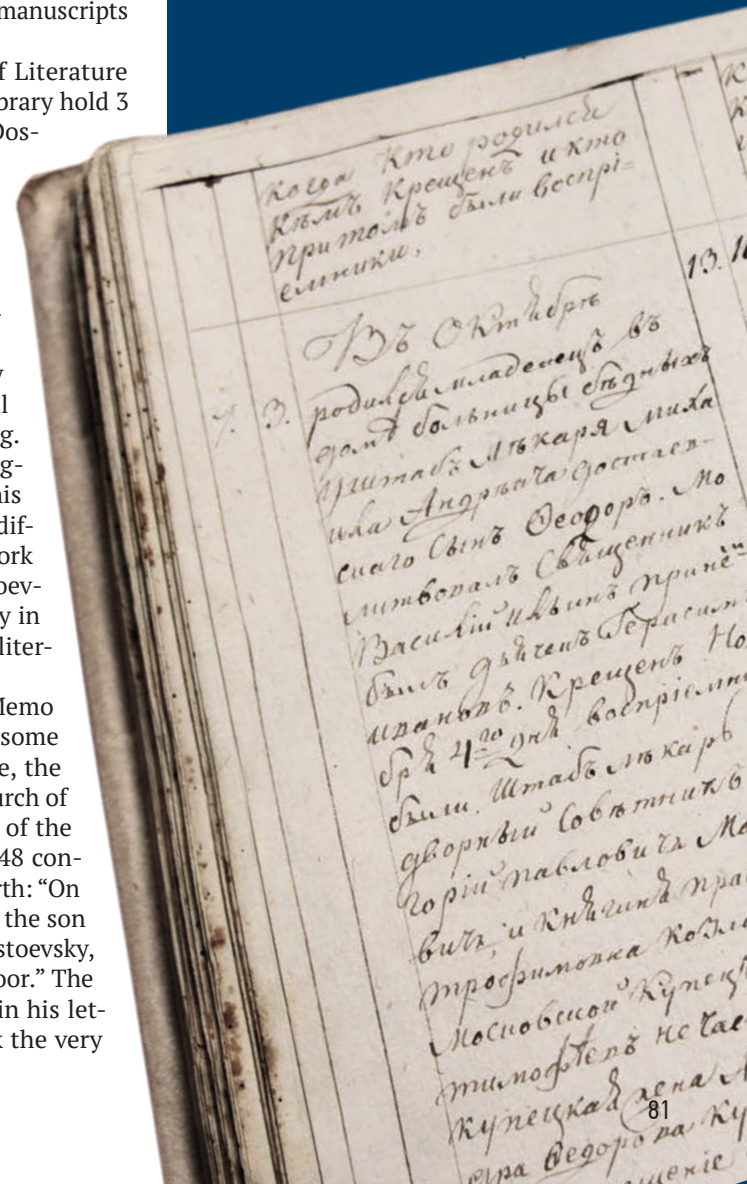 manuscripts
f Literature
brary hold 3
Dos-
y
l
g.
g-
his
dif-
ork
oev-
y in
liter-
Memo
some
e, the
urch of
of the
48 con-
rth: “On
the son
stoevsky,
oor.” The
in his let-
k the very
когда кто родился
кѣмъ крещенъ и кто
притомъ были воспрі=
емники,
Въ Октябрѣ
7. 3. родился младенецъ въ
домѣ больницы бѣдныхъ
уштабъ лѣкаря Миха
ила Андрѣича Достаев-
скаго Сынъ Ѳеодоръ. Мо
литвовалъ Священникъ
Василій Ильинъ при немъ
былъ дьячекъ Герасимъ
ивановъ. Крещенъ Ноя
бря 4го дня воспріемни
были. Штабъ лѣкарь
дворный Совѣтникъ
горій павловичь Ма
вичь, и Княгиня Пра
трофимовна Козло
Московской Купецъ
тимофѣевъ Нечае
купецкая жена А
дра Ѳедорова Ку
щеніе
13.
81